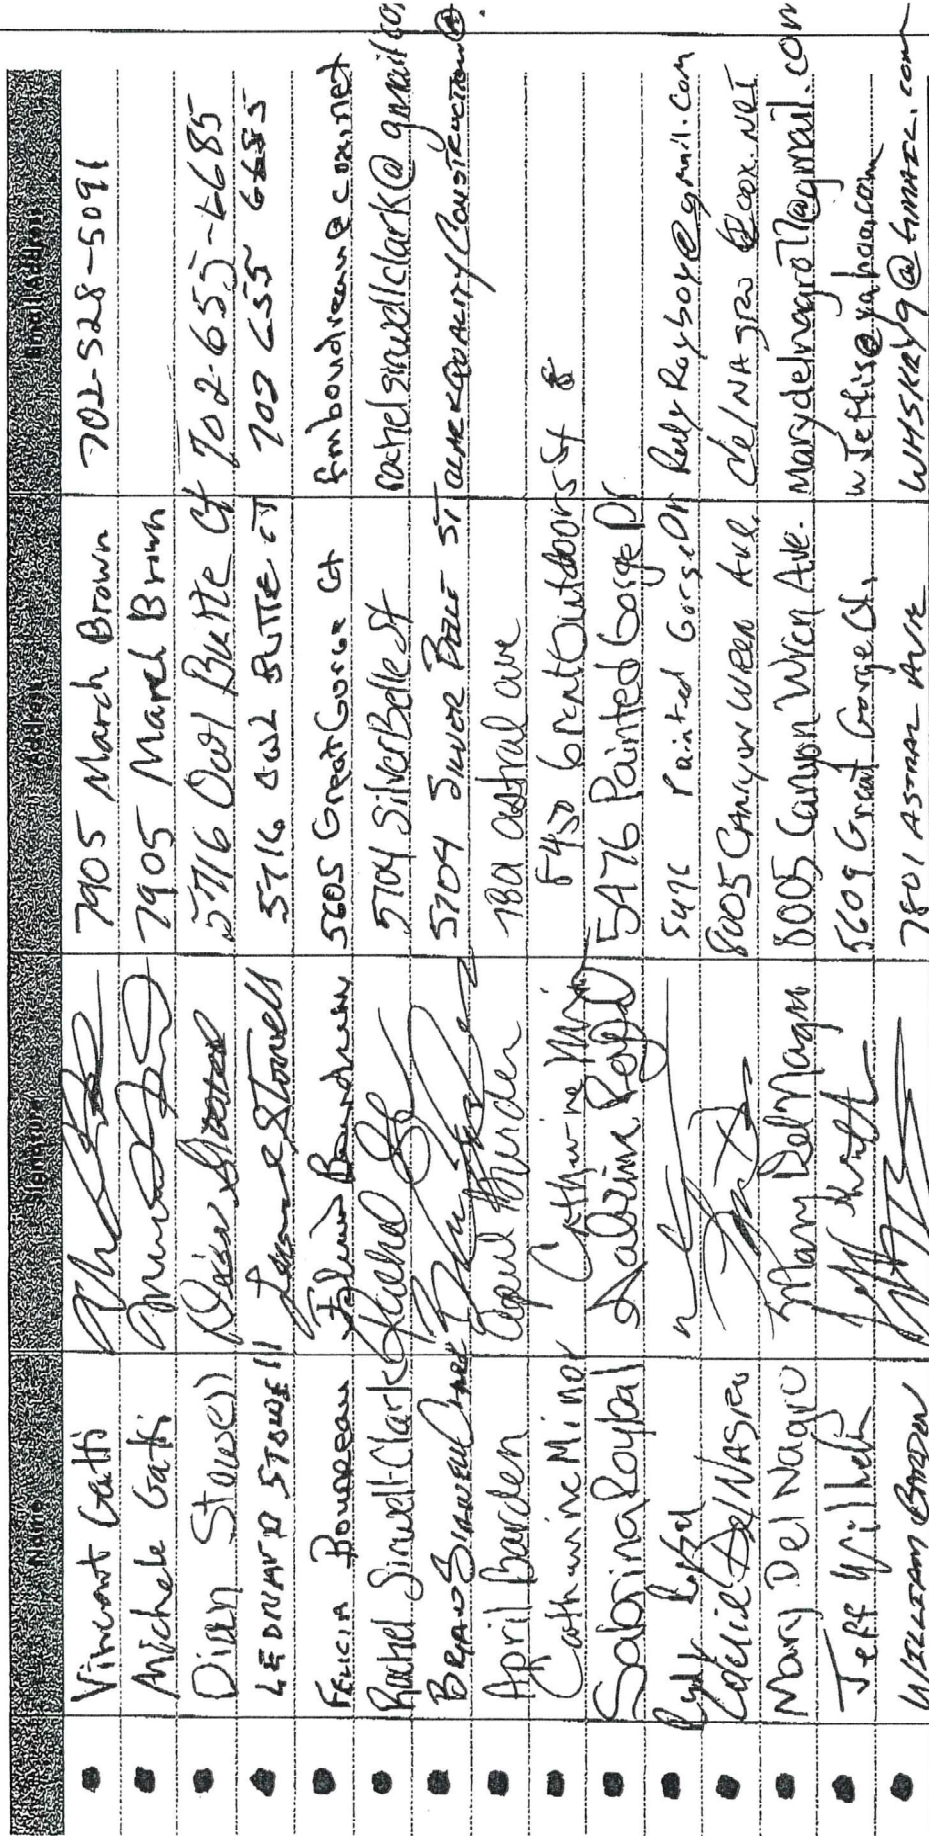 Name Signature Address Email Address
Vincent Gatti 7905 March Brown 702-528-5091
Michele Gatti 7905 March Brown
Dian Stowell 5716 Owl Butte Ct 702-655-6685
LEONARD STOWELL 5716 OWL BUTTE CT 702 655 6685
FELICIA BOUDREAU 5605 Great Gorge Ct fmboudreau@cox.net
Rachel Sinwell-Clark 5704 Silver Belle St rachelsinwellclark@gmail.co
BRYAN SINWELL CLARK 5704 SILVER BELLE ST CLARKQUALITYCONSTRUCTION@
April Barden April Barden 7801 astral ave
Catherine Minor Catherine 5450 Great Outdoors St
Sabrina Roybal Sabrina 5476 Painted Gorge Dr
5476 Painted Gorge Dr RulyRoyboy@gmail.com
Del NAGRO 8005 CANYON WREN AVE. delNAgro@cox.NET
Mary Del Nagro Mary Del Nagro 8005 Canyon Wren Ave. Marydelnagro77@gmail.com
Jeff 5609 Great Gorge Ct. @yahoo.com
WILLIAM BARDEN 7801 ASTRAL AVE WHSKRY9@GMAIL.com